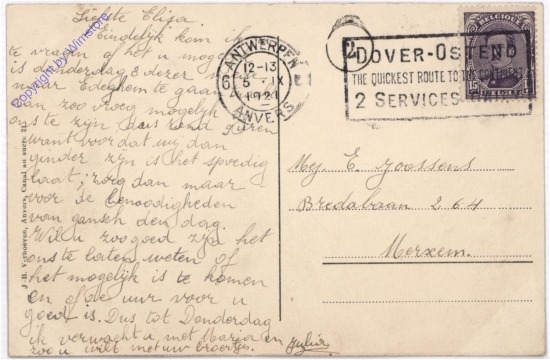 Liefste Eliza
Eindelijk kom ik
te vragen of het u mogelijk
is donderdag 8 dezer
naar Edeghem te gaan
zoo vroeg mogelijk
ons te zijn, dus rond
want voor dat wij dan
ginder zijn is het spoedig
laat; zorg dan maar
voor de benoodigheden
van gansch den dag.
Wil u zoo goed zijn het
ons te laten weten of
het mogelijk is te komen
en of de uur voor u
goed is. Dus tot Donderdag
ik verwacht u met Maria en
zoo u wilt met uw broertje.
Julia
J. B. Vernoeven, Anvers, Canal au sucre
Copyright by Winstore
ANTWERPEN
6 12-13
5 · IX
1921
ANVERS
2
DOVER-OSTEND
THE QUICKEST ROUTE TO THE CONTINENT
2 SERVICES
BELGIQUE
15
BELGIË
Mej E. Joossens
Bredabaan 264
Merxem.